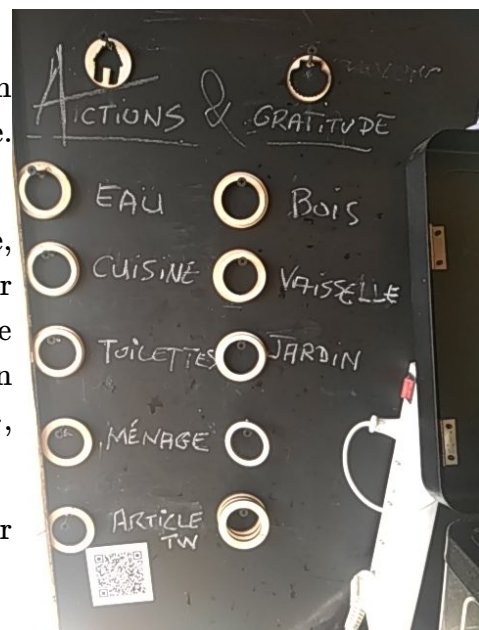 ACTIONS & GRATITUDE
EAU BOIS
CUISINE VAISSELLE
TOILETTES JARDIN
MÉNAGE
ARTICLE
TW